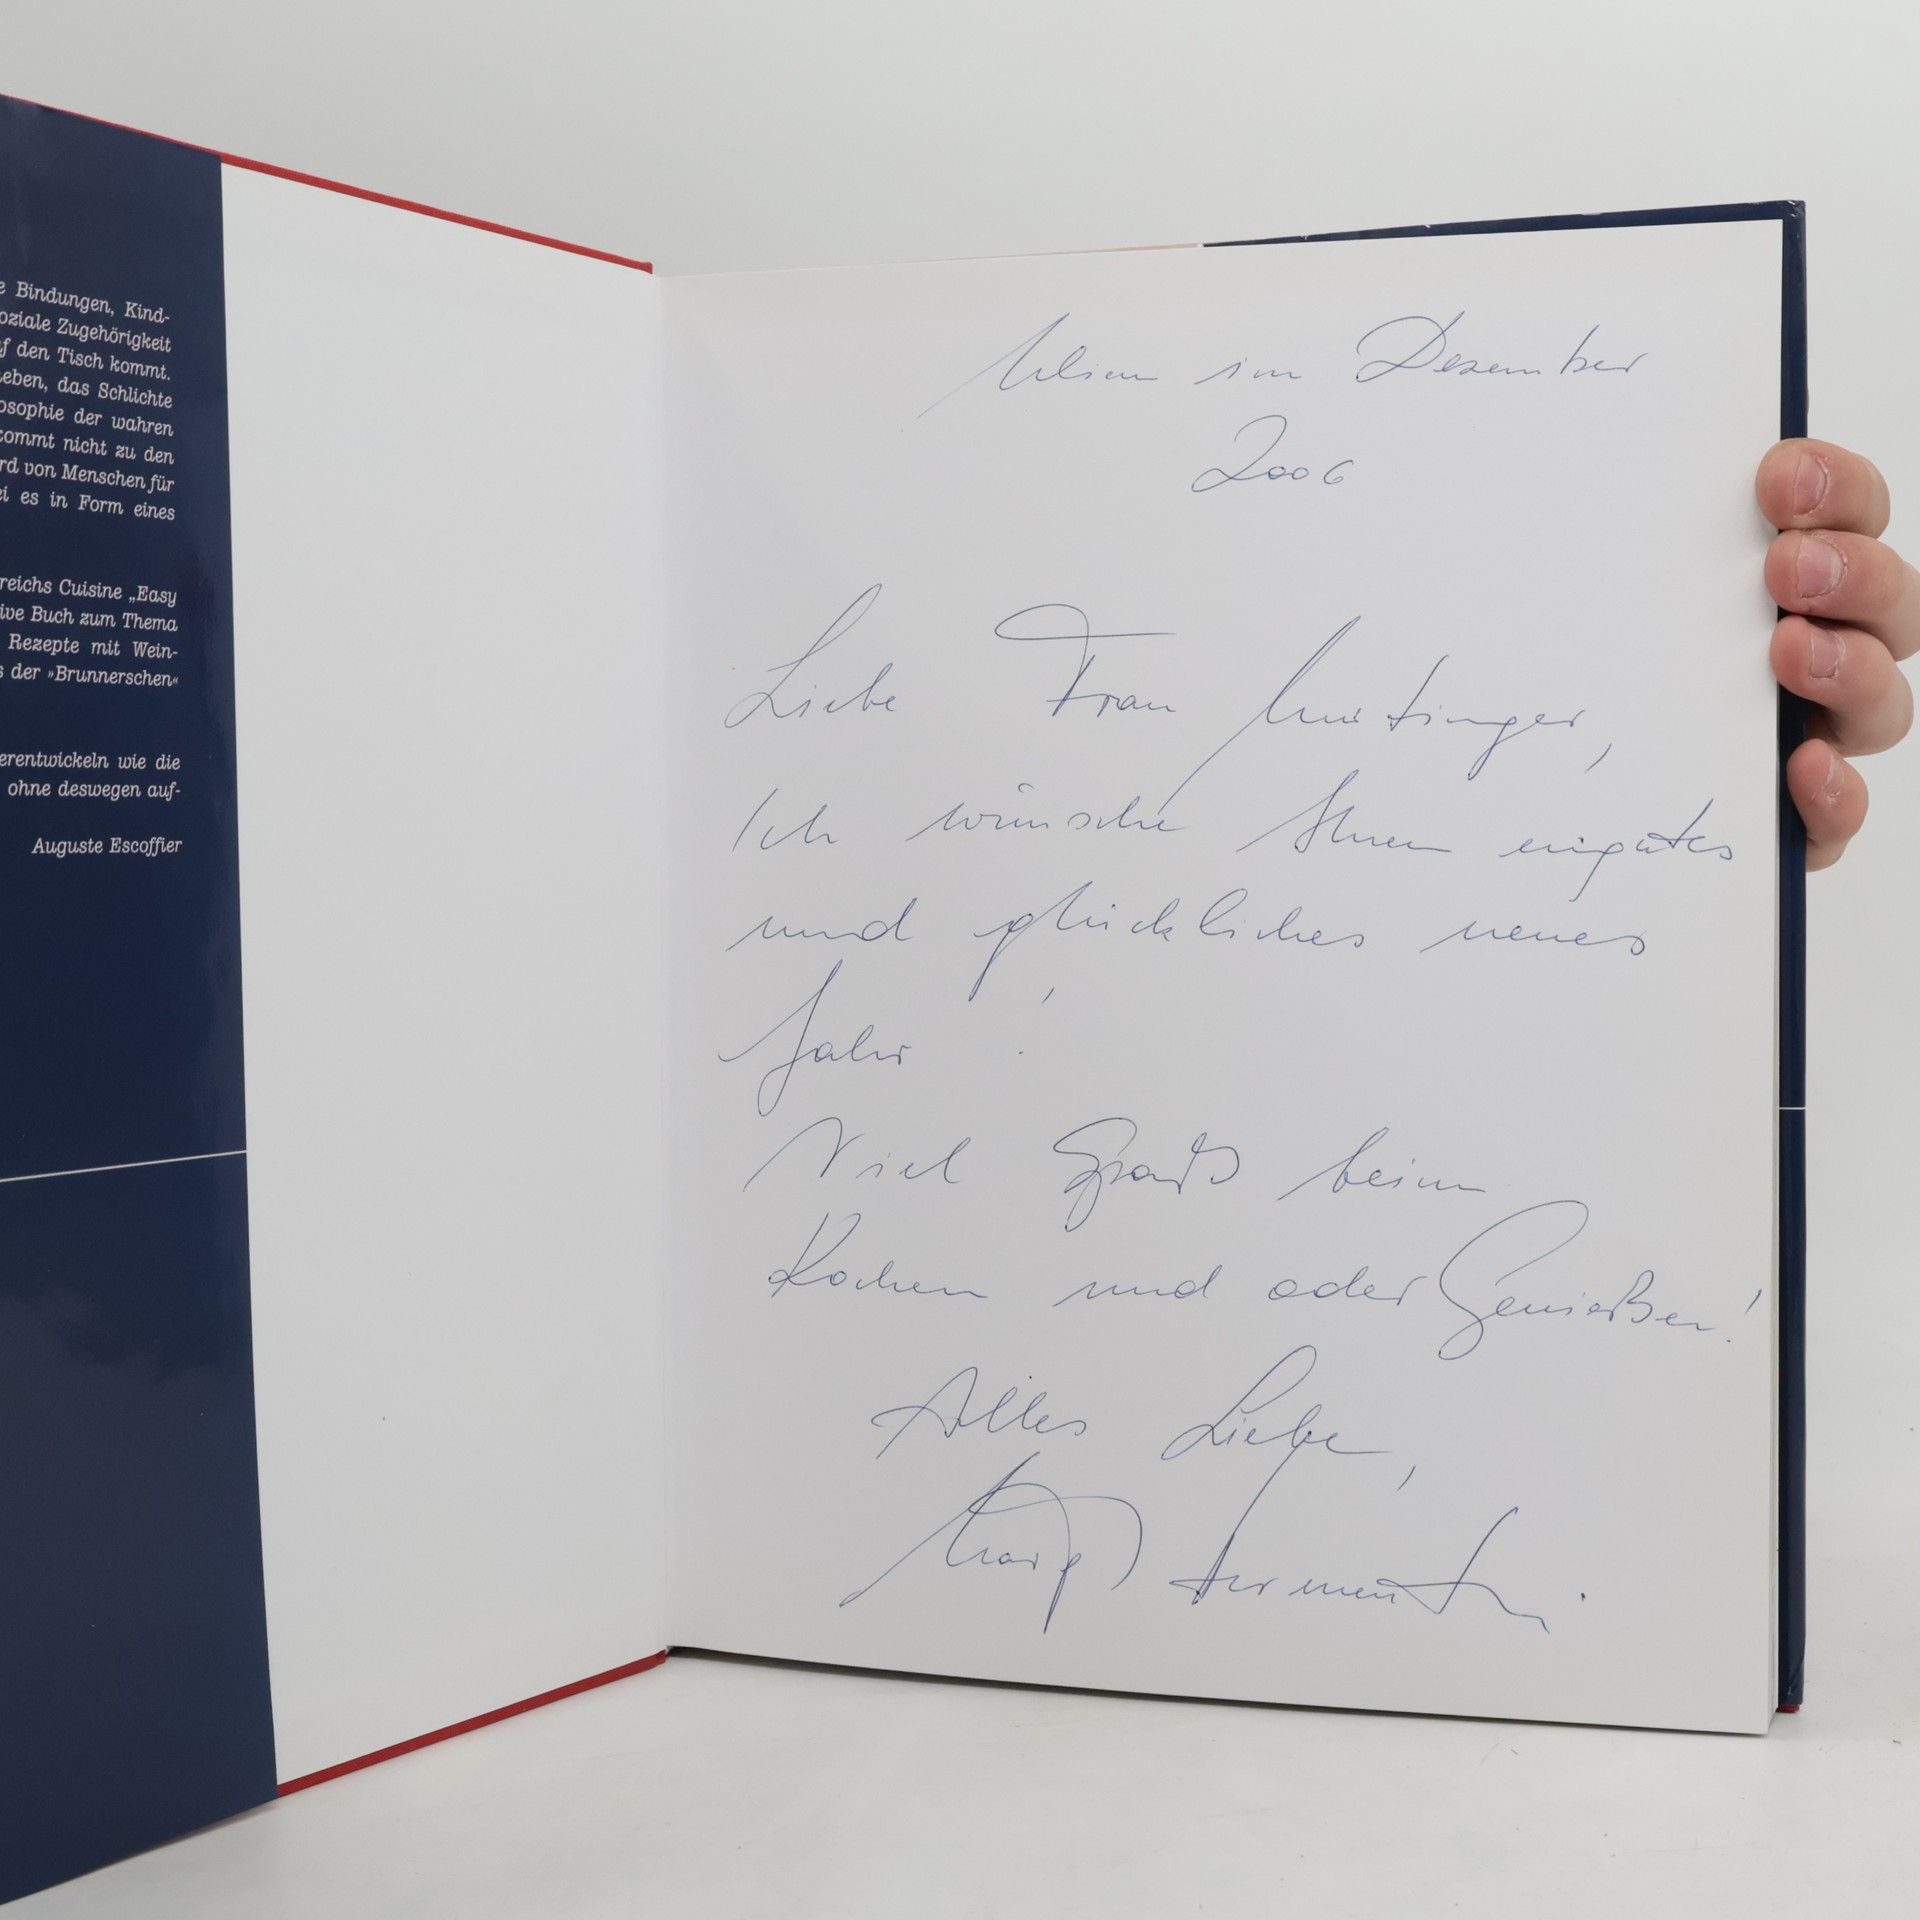 e Bindungen, Kind-
oziale Zugehörigkeit
f den Tisch kommt.
eben, das Schlichte
osophie der wahren
kommt nicht zu den
rd von Menschen für
ei es in Form eines
reichs Cuisine „Easy
ive Buch zum Thema
Rezepte mit Wein-
s der »Brunnerschen«
erentwickeln wie die
ohne deswegen auf-
Auguste Escoffier
Wien im Dezember
2006
Liebe Frau
Ich wünsche Ihnen ein gutes
und glückliches neues
Jahr !
Viel Spaß beim
Kochen und oder Genießen!
Alles Liebe,